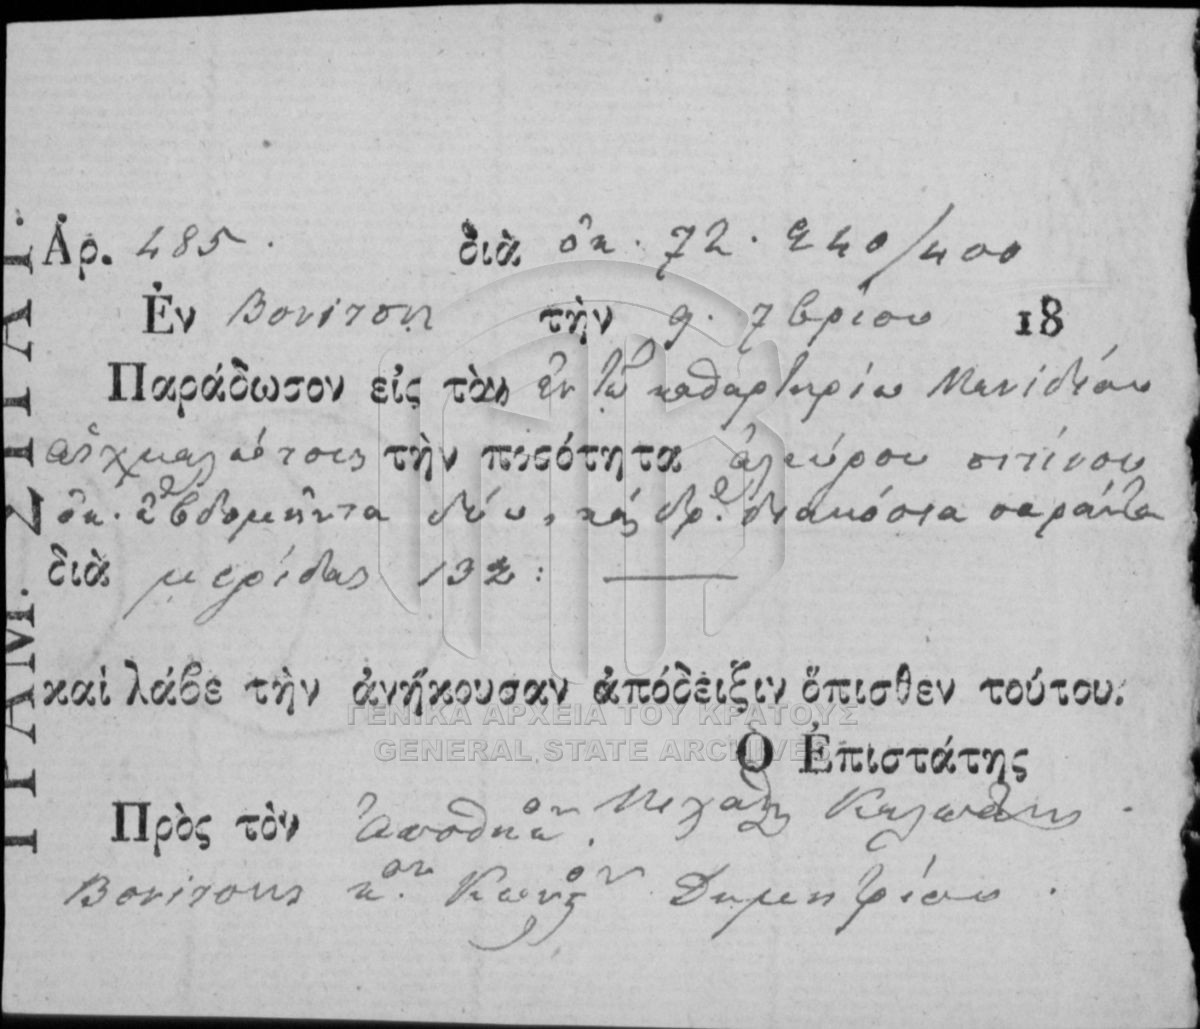 Ἀρ. 485. διὰ ὀκ. 72. 240/400
Ἐν Βονίτση τὴν 9. 7βρίου 18
Παράδωσον εἰς τοὺς ἐν τῷ καθαρτηρίῳ Μενιδίου
αἰχμαλώτους τὴν ποσότητα ἀλεύρου σιτίνου
ὀκ. ἑβδομῆντα δύω, καὶ δρ. διακόσια σαράντα
διὰ μερίδας 132:
καὶ λάβε τὴν ἀνήκουσαν ἀπόδειξιν ὄπισθεν τούτου.
ΓΕΝΙΚΑ ΑΡΧΕΙΑ ΤΟΥ ΚΡΑΤΟΥΣ
GENERAL STATE ARCHIVES
Ὁ Ἐπιστάτης
Πρὸς τὸν Ἀποθηκ.
Βονίτσης κον. Κωνςον Δημητρίου.
ΓΡΑΜ. ΣΙΤΑΓ.